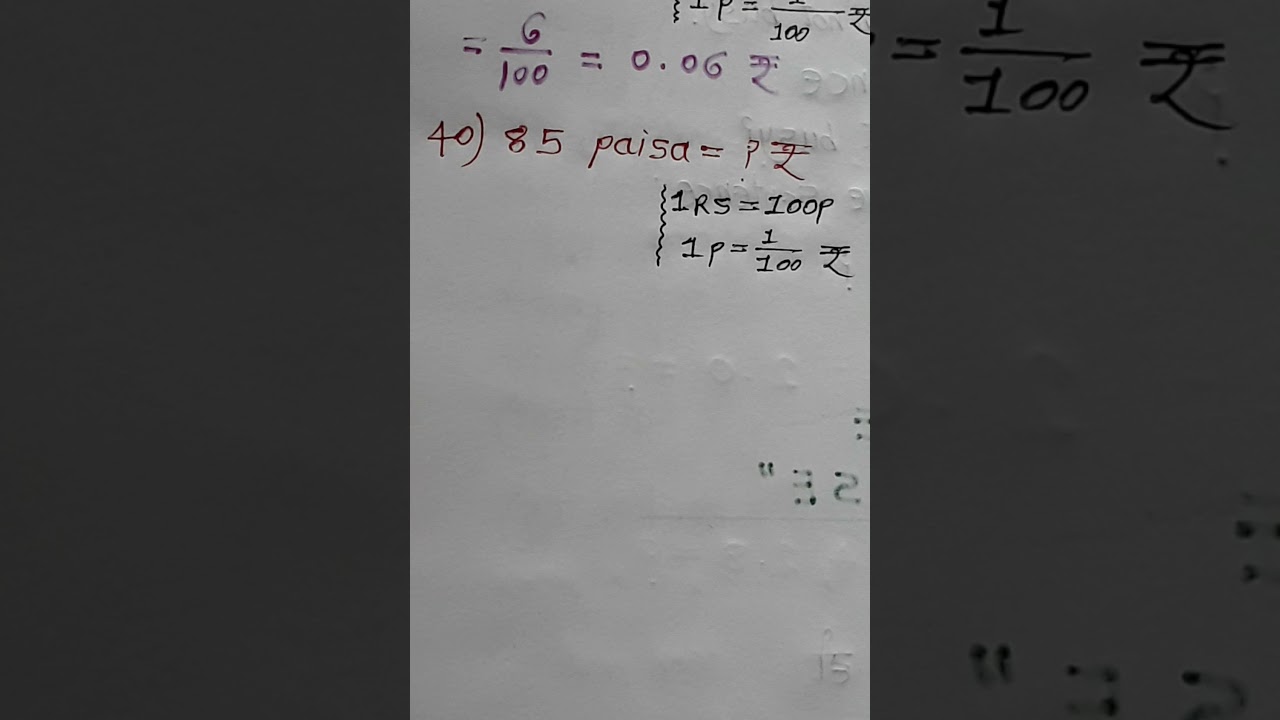 1 P = 1/100 ₹
= 6/100 = 0.06 ₹
40) 85 paisa = ? ₹
1 RS = 100P
1 P = 1/100 ₹
= 1/100 ₹